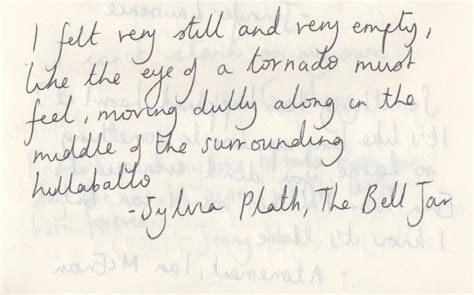 I felt very still and very empty,
like the eye of a tornado must
feel, moving dully along in the
middle of the surrounding
hullaballo
-Sylvia Plath, The Bell Jar